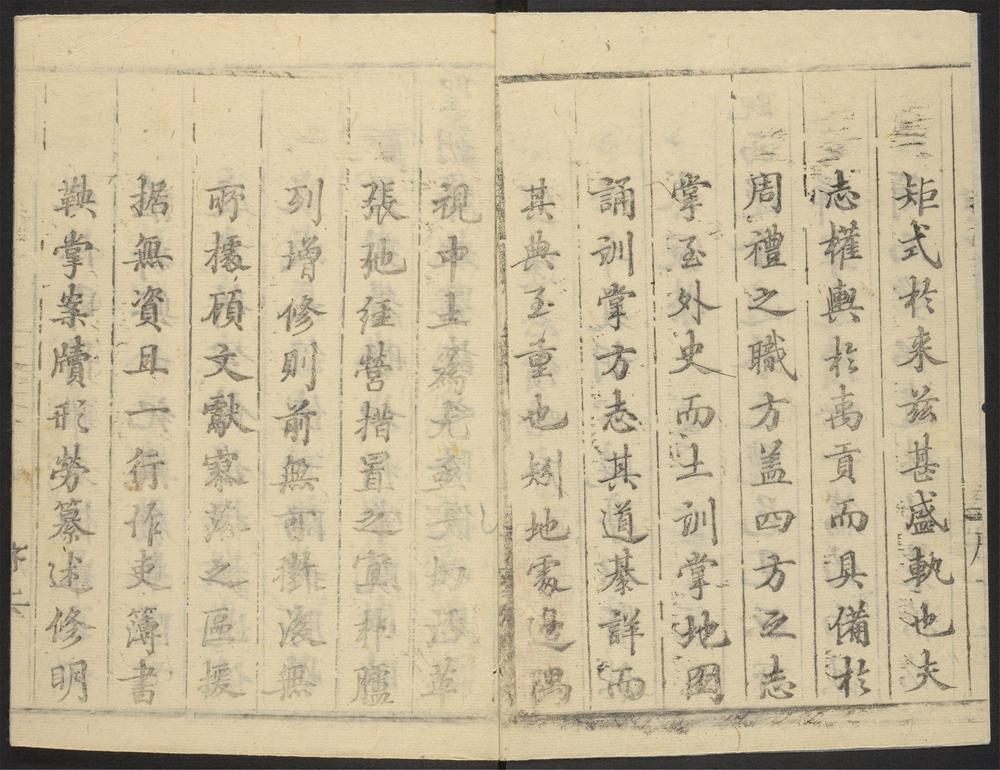 矩式於来兹甚盛軌也夫
志權輿於禹貢而具備於
周禮之職方盖四方之志
掌至外史而土訓掌地圖
誦訓掌方志其道綦詳而
其典至重也矧地處邊隅
視中土為尤
張弛經營措置之宜非臚
列增修則前無可徵後無
所據顧文獻寥落之區援
据無資且一行作吏簿書
鞅掌案牘形勞纂述修明